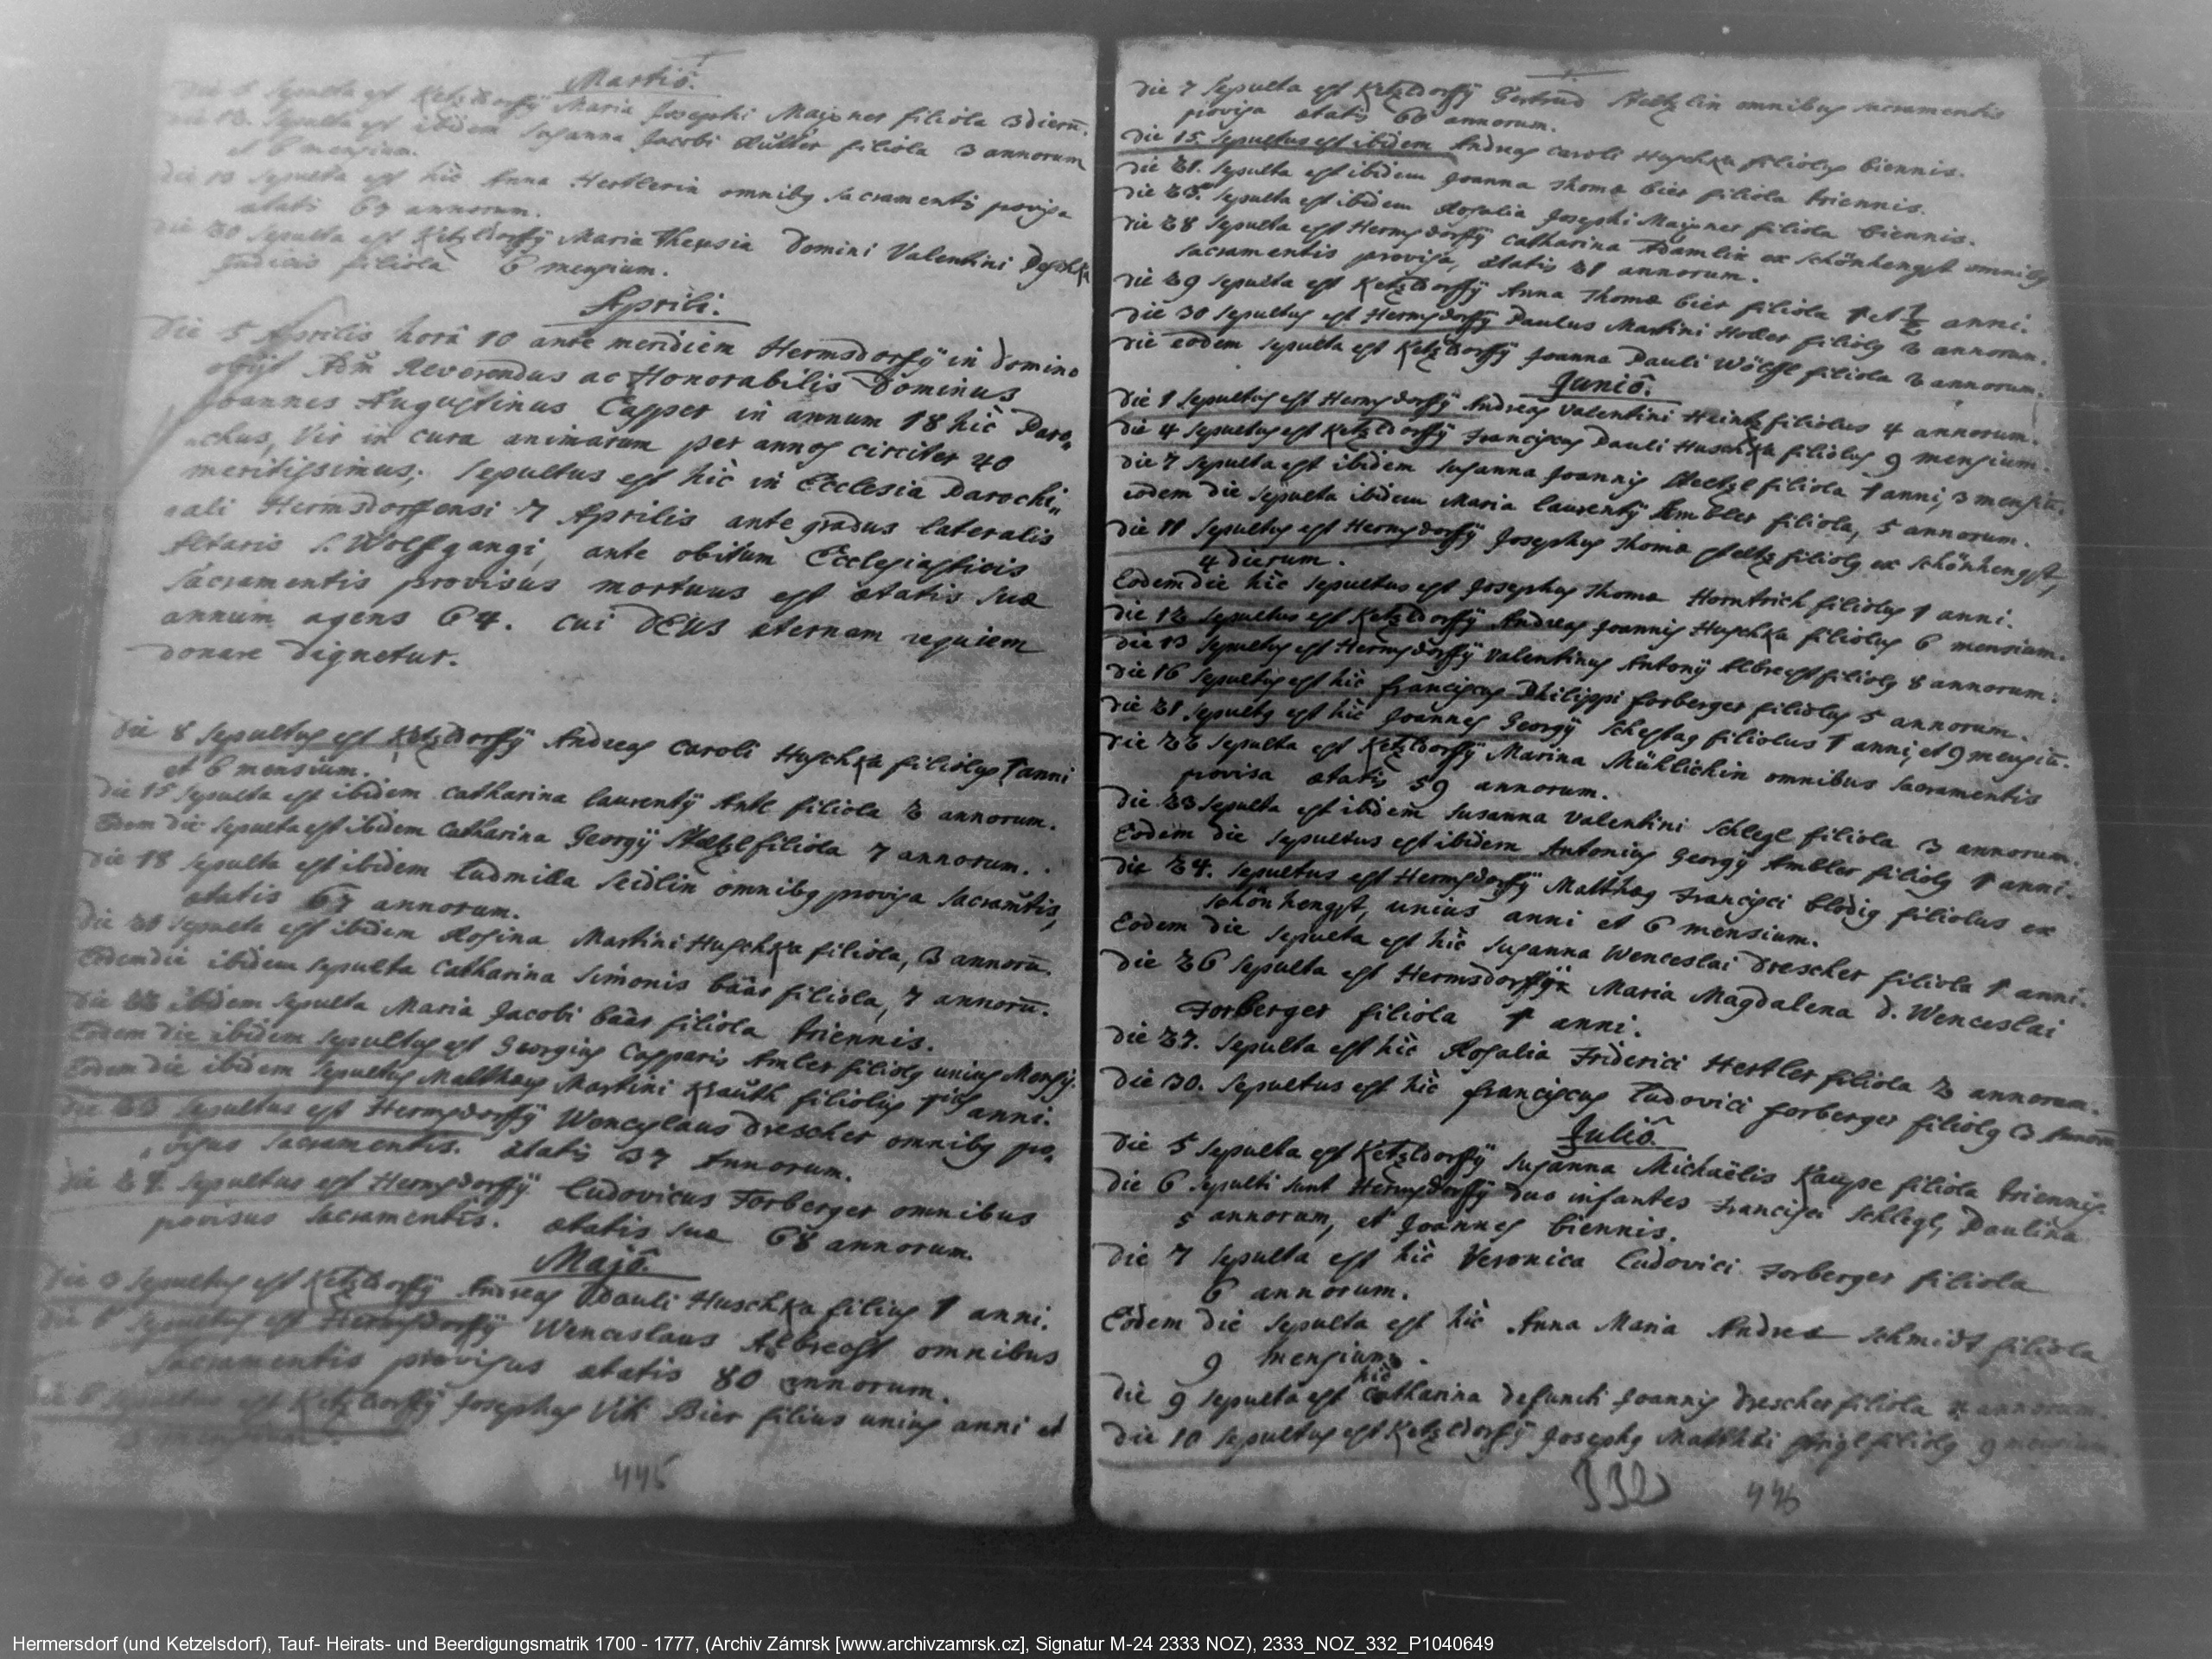 Martiō.
Die 8 Sepulta est Ketzldorffÿ Maria Josephi Maixner filiola 3 dierū.
Die 12. Sepulta est ibidem Susanna Jacobi filiola 3 annorum
et 6 mensium.
Die 13 Sepulta est hic Anna Hertlerin omnibq sacramentis provisa
ætatis 67 annorum.
Die 20 Sepulta est Ketzldorffÿ Maria Theresia Domini Valentini
Judicis filiola 6 mensium.
Aprili.
Die 5 Aprilis horâ 10 ante meridiem Hermsdorffÿ in Domino
obijt Adm Reverendus ac Honorabilis Dominus
Joannes Augustinus Casper in annum 18 hic Paro„
chus, Vir in cura animarum per annos circiter 40
meritissimus; Sepultus est hic in Ecclesia Parochi„
ali Hermsdorffensi 7 Aprilis ante gradus lateralis
Altaris S. Wolffgangi, ante obitum Ecclesiasticis
sacramentis provisus mortuus est ætatis suæ
annum agens 64. cui DEUS æternam requiem
donare dignetur.
Die 8 Sepultus est Ketzldorffÿ Andreas Caroli Huschka filiolus 1 anni
et 6 mensium.
Die 15 Sepulta est ibidem Catharina Laurentÿ Antl filiola 2 annorum.
Eodem die Sepulta est ibidem Catharina Georgÿ filiola 7 annorum.
Die 18 Sepulta est ibidem Ludmilla Seidlin omnibq provisa sacramētis,
ætatis 67 annorum.
Die 20 Sepulta est ibidem Rosina Martini Huschka filiola, 3 annorū.
Eodem die ibidem Sepulta Catharina Simonis Båår filiola, 7 annorū.
Die 22 ibidem Sepulta Maria Jacobi Båår filiola triennis.
Eodem die ibidem Sepultus est Georgius Casparis Amler filiolq unius Mensis.
Eodem die ibidem Sepultus Matthæus Martini Krauth filiolus anni.
Die Sepultus est Hermsdorffÿ Wenceslaus Drescher omnibq pro„
visus sacramentis. ætatis 37 Annorum.
Die 27. Sepultus est Hermsdorffÿ Ludovicus Forberger omnibus
provisus sacramentis. ætatis suæ 68 annorum.
Majō.
Die 3 Sepultus est Ketzldorffÿ Andreas Pauli Huschka filius 1 anni.
Die 6 Sepultus est Hermsdorffÿ Wenceslaus Albrecht omnibus
sacramentis provisus ætatis 80 annorum.
Die 8 Sepultus est Ketzldorffÿ Josephus Viti Bier filius unius anni et
445
Die 7 Sepulta est Ketzldorffÿ Gertrud omnibus sacramentis
provisa ætatis 60 annorum.
Die 15. Sepultus est ibidem Andreas Caroli Huschka filiolus biennis.
Die 21. Sepulta est ibidem Joanna Thomæ Bier filiola triennis.
Die 23. Sepulta est ibidem Rosalia Josephi Maixner filiola biennis.
Die 28 Sepulta est Hermsdorffÿ Catharina Adamlin ex Schönhengst omnibq
sacramentis provisa, ætatis 21 annorum.
Die 29 Sepulta est Ketzldorffÿ Anna Thomæ Bier filiola 1 et 1/2 anni.
Die 30 Sepultus est Hermsdorffÿ Paulus Martini filiolq 2 annorum.
Die eodem Sepulta est Ketzldorffÿ Joanna Pauli Wölffl filiola 2 annorum.
Juniō.
Die 1 Sepultus est Hermsdorffÿ Andreas Valentini Heintz filiolus 4 annorum.
Die 4 Sepultus est Ketzldorffÿ Franciscus Pauli Huschka filiolus 9 mensium.
Die 7 Sepulta est ibidem Susanna Joannis filiola 1 anni, 3 mensiū.
eodem die Sepulta ibidem Maria Laurentÿ Ambler filiola, 5 annorum.
Die 11 Sepultus est Hermsdorffÿ Josephus Thomæ filiolq ex Schönhengst,
4 dierum.
Eodem die hic Sepultus est Josephus Thomæ Horntrich filiolus 1 anni.
Die 12 Sepultus est Ketzldorffÿ Andreas Joannis Huschka filiolus 6 mensium.
Die 13 Sepultus est Hermsdorffÿ Valentinus Antonÿ Albrecht filiolq 8 annorum.
Die 16 Sepultus est hic Franciscus Philippi Forberger filiolus 5 annorum.
Die 21 Sepultq est hic Joannes Georgÿ Schestag filiolus 1 anni, et 9 mensiū.
Die 22 Sepulta est Ketzldorffÿ Marina Mühlichin omnibus sacramentis
provisa ætatis 59 annorum.
Die 23 Sepulta est ibidem Susanna Valentini Schlegl filiola 3 annorum.
Eodem die Sepultus est ibidem Antonius Georgÿ Ambler filiolq 1 anni.
Die 24. Sepultus est Hermsdorffÿ Matthæq Francisci Blodig filiolus ex
Schönhengst, unius anni et 6 mensium.
Eodem die Sepulta est hic Susanna Wenceslai Drescher filiola 1 anni.
Die 26 Sepulta est Hermsdorffÿ Maria Magdalena D. Wenceslai
Forberger filiola 1 anni.
Die 27. Sepulta est hic Rosalia Friderici Hertler filiola 2 annorum.
Die 30. Sepultus est hic Franciscus Ludovici Forberger filiolq 3 Annorū
Juliō.
Die 5 Sepulta est Ketzldorffÿ Susanna Michaëlis Kaupe filiola triennis.
Die 6 Sepulti sunt Hermsdorffÿ duo infantes Francisci Schlegl, Paulina
5 annorum, et Joannes biennis.
Die 7 Sepulta est hic Veronica Ludovici Forberger filiola
6 annorum.
Eodem die Sepulta est hic Anna Maria Andreæ Schmidt filiola
9 mensium.
Die 9 Sepulta est hic Catharina defuncti Joannis Drescher filiola annorum.
Die 10 Sepultus est Ketzldorffÿ Josephq Matthæi filiolq 9 mensium
332 446
Hermersdorf (und Ketzelsdorf), Tauf- Heirats- und Beerdigungsmatrik 1700 - 1777, (Archiv Zámrsk [www.archivzamrsk.cz], Signatur M-24 2333 NOZ), 2333_NOZ_332_P1040649